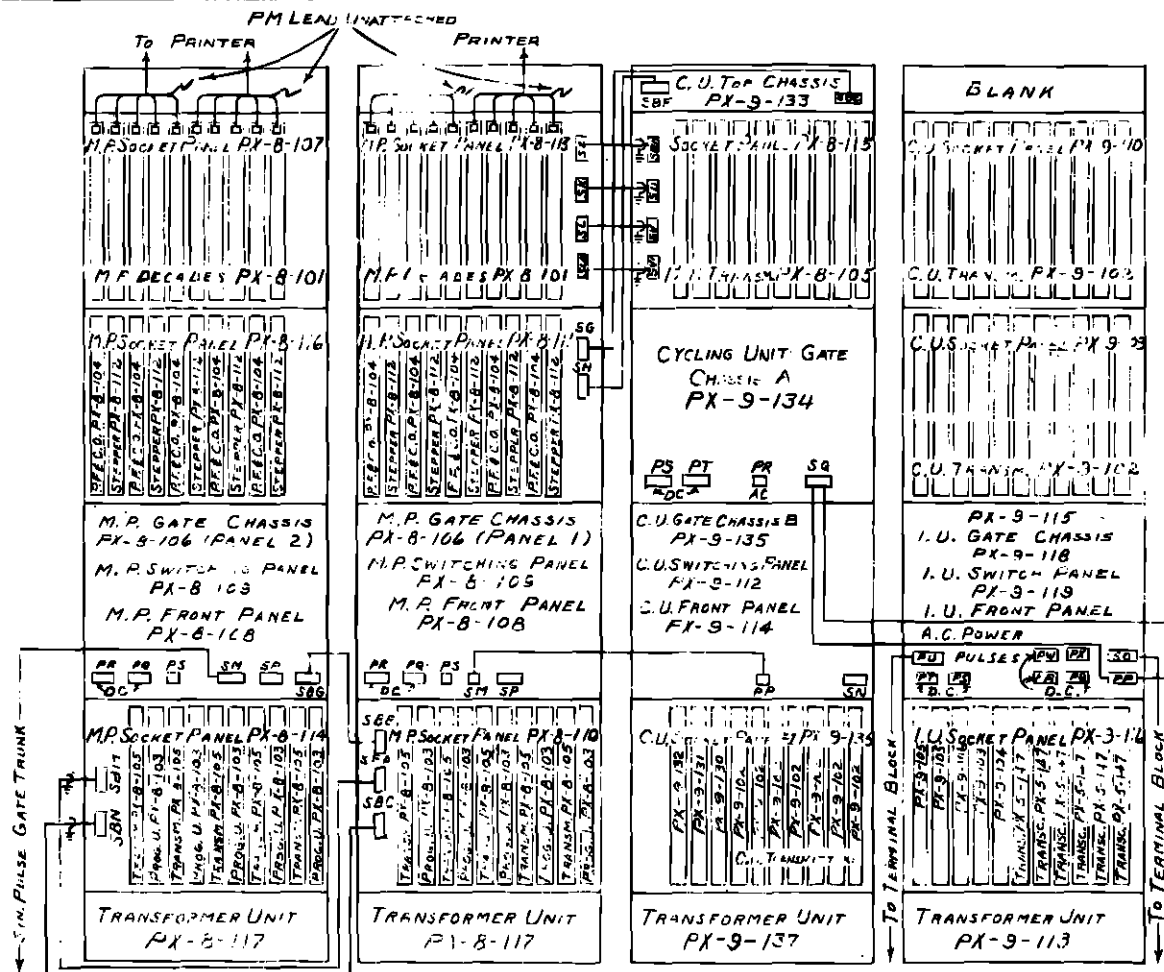 PM LEAD UNATTACHED
To PRINTER
PRINTER
M.P. SOCKET PANEL PX-8-107
M.F. DECADES PX-8-101
M.P. SOCKET PANEL PX-8-116
P.F.& C.O. PX-8-104
STEPPER PX-8-112
P.F.& C.O. PX-8-104
STEPPER PX-8-112
P.F.& C.O. PX-8-104
STEPPER PX-8-112
P.F.& C.O. PX-8-104
STEPPER PX-8-112
P.F.& C.O. PX-8-104
STEPPER PX-8-112
M.P. GATE CHASSIS
PX-8-106 (PANEL 2)
M.P. SWITCHING PANEL
PX-8-109
M.P. FRONT PANEL
PX-8-108
PR PQ PS SM SP
DC SBG
M.P. SOCKET PANEL PX-8-114
SBN
TRANSM. PX-8-105
PROG. U. PX-8-103
TRANSM. PX-8-105
PROG. U. PX-8-103
TRANSM. PX-8-105
PROG. U. PX-8-103
TRANSM. PX-8-105
PROG. U. PX-8-103
TRANSM. PX-8-105
PROG. U. PX-8-103
TRANSFORMER UNIT
PX-8-117
SYN. PULSE GATE TRUNK
M.P. SOCKET PANEL PX-8-
M.F. DECADES PX-8-101
SK
SL
M.P. SOCKET PANEL PX-8-
SG
SH
P.F.& C.O. PX-8-104
STEPPER PX-8-112
P.F.& C.O. PX-8-104
STEPPER PX-8-112
P.F.& C.O. PX-8-104
STEPPER PX-8-112
P.F.& C.O. PX-8-104
STEPPER PX-8-112
P.F.& C.O. PX-8-104
STEPPER PX-8-112
M.P. GATE CHASSIS
PX-8-106 (PANEL 1)
M.P. SWITCHING PANEL
PX-8-109
M.P. FRONT PANEL
PX-8-108
PR PQ PS
DC SM SP
SBE
M.P. SOCKET PANEL PX-8-110
SBC
TRANSM. PX-8-105
PROG. U. PX-8-103
TRANSM. PX-8-105
PROG. U. PX-8-103
TRANSM. PX-8-105
PROG. U. PX-8-103
TRANSM. PX-8-105
PROG. U. PX-8-103
TRANSM. PX-8-105
PROG. U. PX-8-103
TRANSFORMER UNIT
PX-8-117
C.U. TOP CHASSIS
SBF PX-9-133
SOCKET PANEL PX-8-115
TRANSM. PX-8-105
CYCLING UNIT GATE
CHASSIS A
PX-9-134
PS PT PR SQ
DC AC
C.U. GATE CHASSIS B
PX-9-135
C.U. SWITCHING PANEL
PX-9-112
C.U. FRONT PANEL
PX-9-114
PP SN
C.U. SOCKET PANEL PX-9-136
PX-9-132
PX-9-131
PX-9-130
PX-9-102
PX-9-102
PX-9-102
PX-9-102
PX-9-102
PX-9-102
C.U. TRANSMITTERS
TRANSFORMER UNIT
PX-9-137
BLANK
C.U. SOCKET PANEL PX-9-110
C.U. TRANSM. PX-9-102
C.U. SOCKET PANEL PX-9-
C.U. TRANSM. PX-9-102
PX-9-115
I.U. GATE CHASSIS
PX-9-118
I.U. SWITCH PANEL
PX-9-119
I.U. FRONT PANEL
A.C. POWER
PU PULSES PW PX SO
PT PS PP
D.C. D.C.
I.U. SOCKET PANEL PX-9-116
PX-9-105
PX-9-103
PX-9-103
PX-9-104
TRANSC. PX-5-147
TRANSC. PX-5-147
TRANSC. PX-5-147
TRANSC. PX-5-147
TRANSC. PX-5-147
TRANSC. PX-5-147
TRANSFORMER UNIT
PX-9-113
To TERMINAL BLOCK
To TERMINAL BLOCK